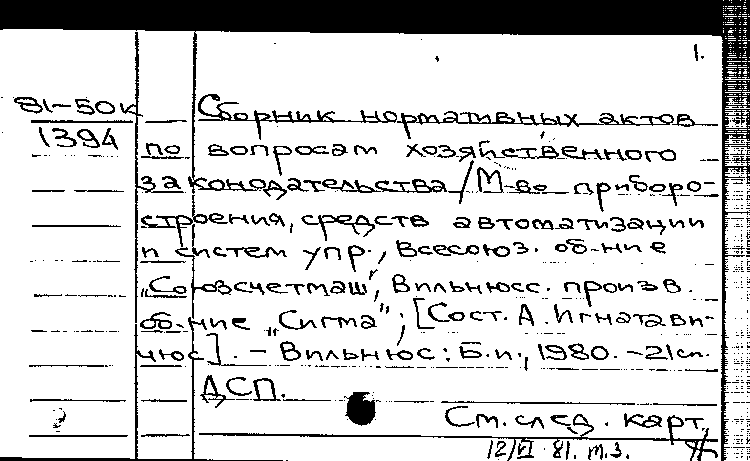 1.
81-50к
1394
Сборник нормативных актов
по вопросам хозяйственного
законодательства/М-во приборо-
строения, средств автоматизации
и систем упр., Всесоюз. об-ние
„Союзсчетмаш", Вильнюсс. произв.
об-ние „Сигма"; [Сост. А. Игнатави-
чюс]. – Вильнюс: Б.и., 1980. – 21 сп.
ДСП.
См. след. карт.
12/VI 81. т.3.